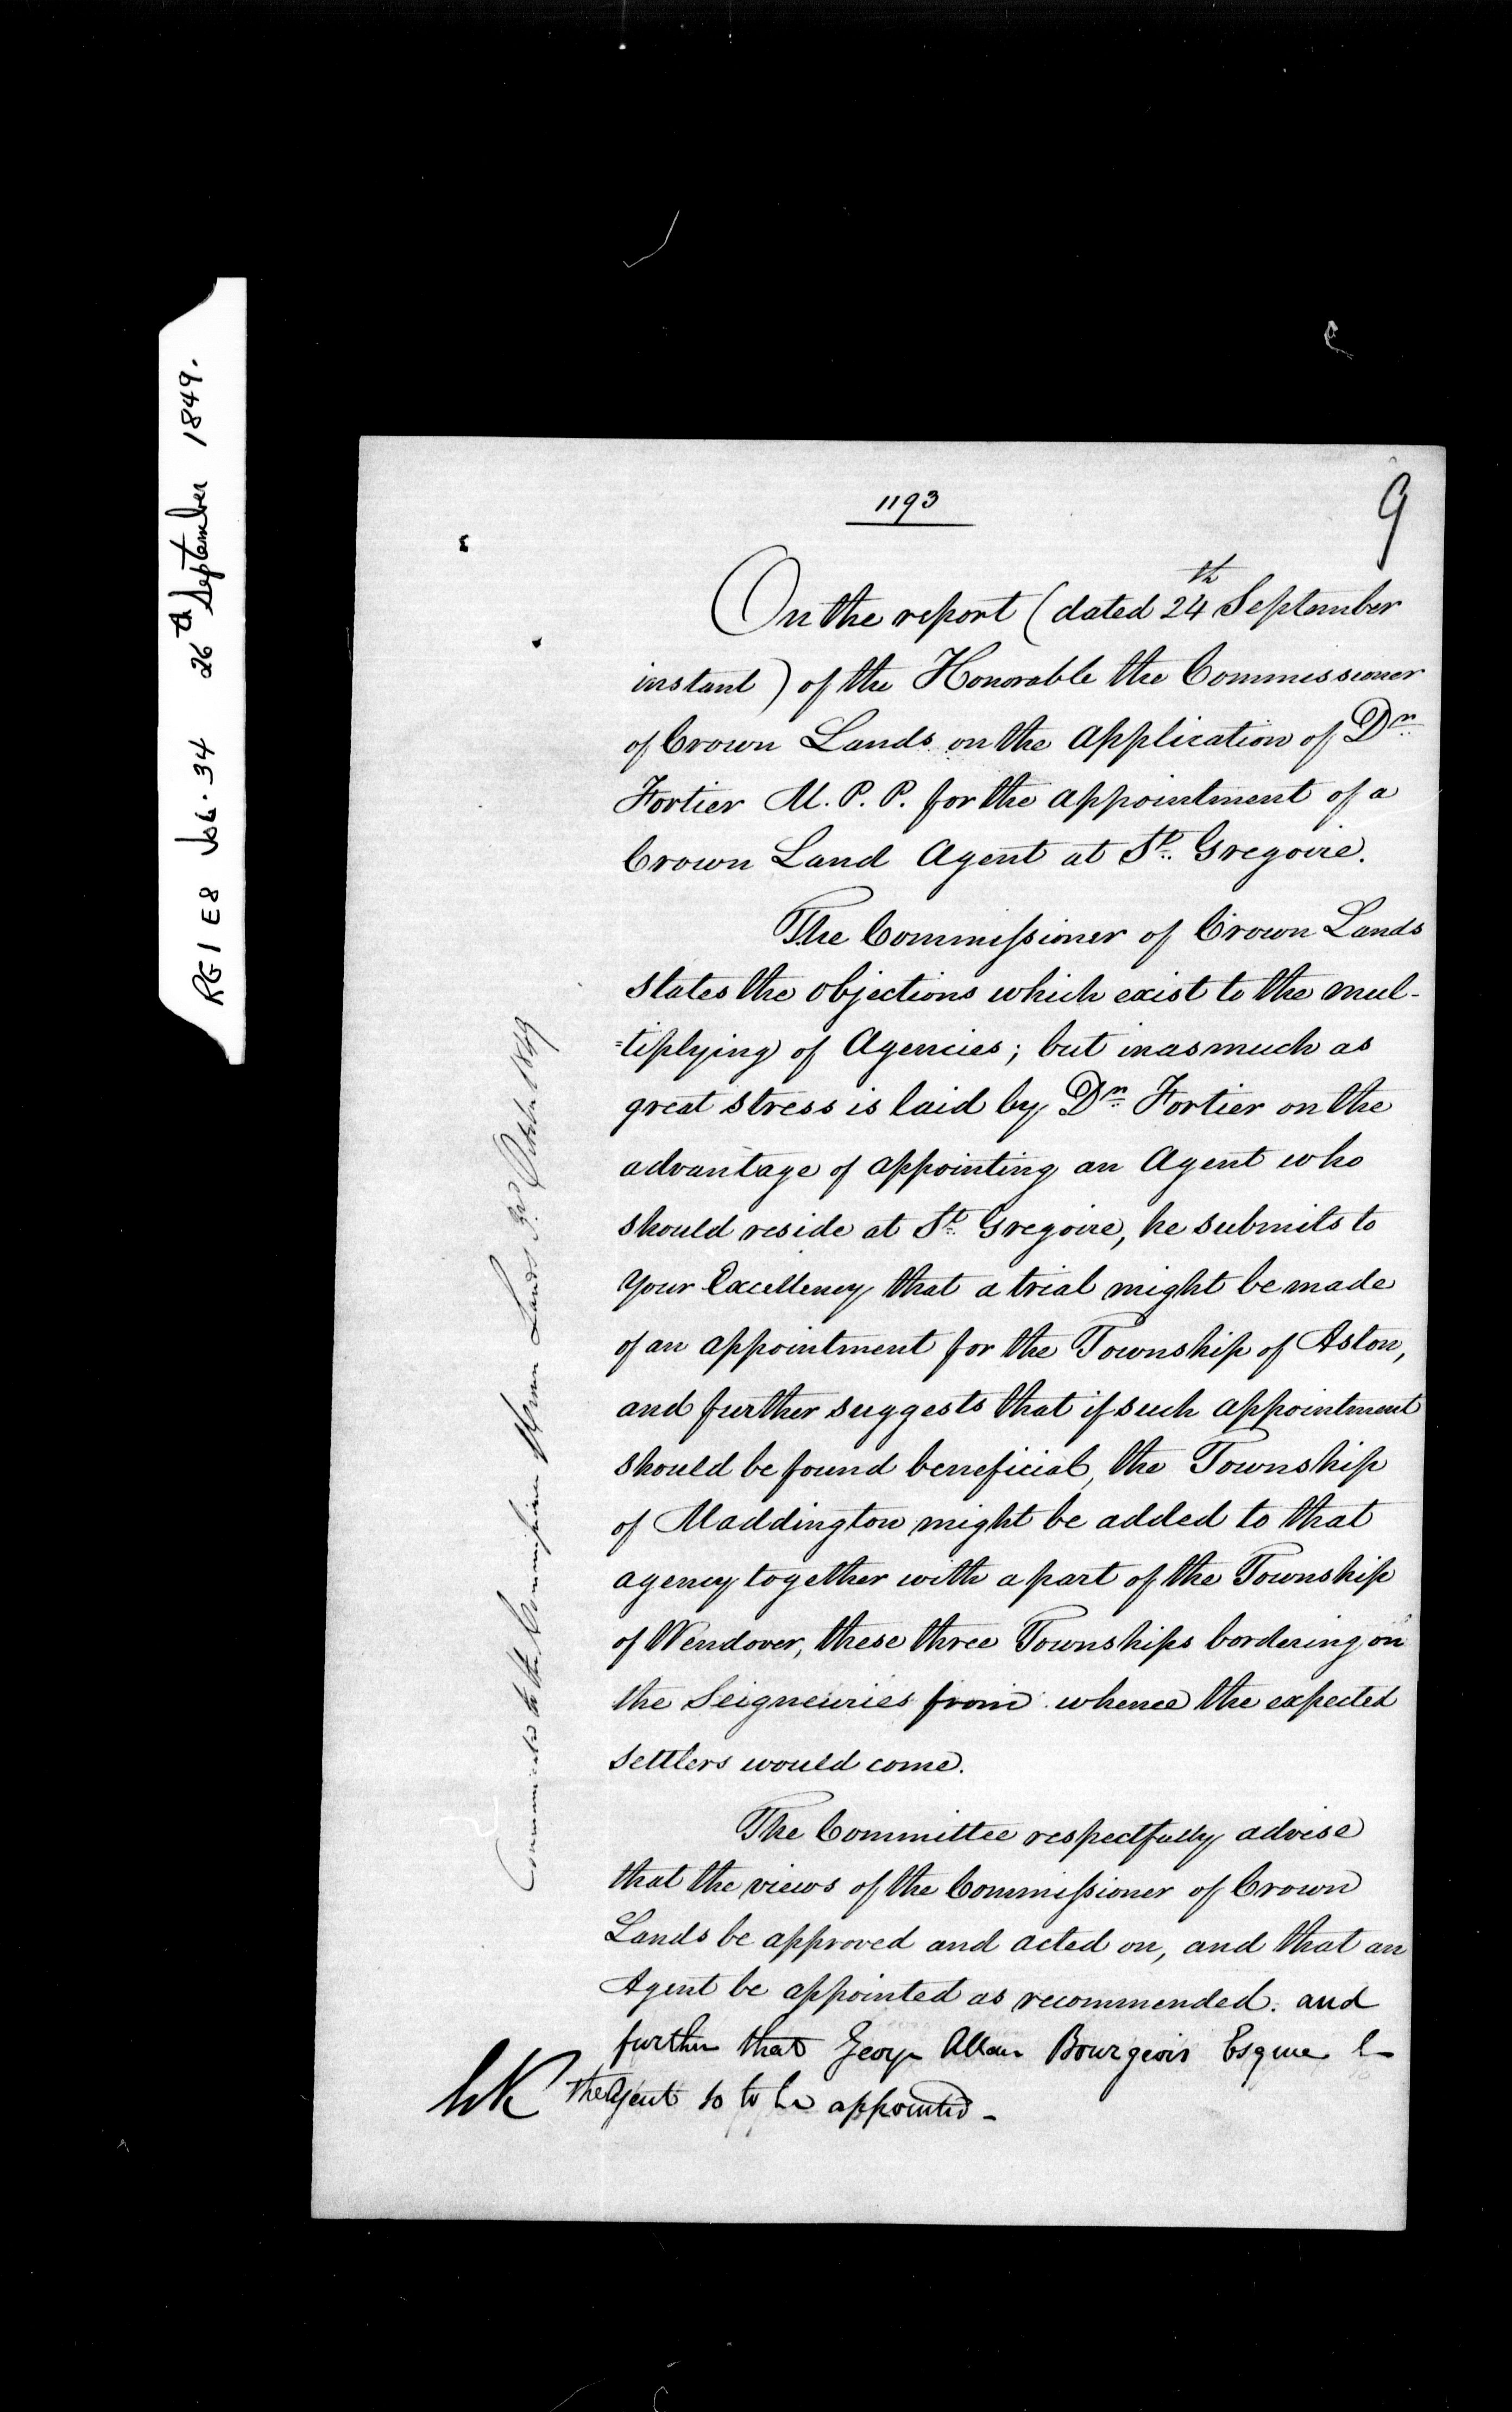 RG 1 E8 Vol. 34 26th September 1849.
1193
9
On the report (dated 24th September
instant) of the Honorable the Commissioner
of Crown Lands on the application of Dr.
Fortier M. P. P. for the appointment of a
Crown Land Agent at St. Gregoire.
The Commissioner of Crown Lands
states the objections which exist to the mul-
=tiplying of Agencies; but inasmuch as
great stress is laid by Dr. Fortier on the
advantage of appointing an Agent who
should reside at St. Gregoire, he submits to
Your Excellency that a trial might be made
of an appointment for the Township of Aston,
and further suggests that if such appointment
should be found beneficial, the Township
of Maddington might be added to that
agency together with a part of the Township
of Wendover, these three Townships bordering on
the Seigneuries from whence the expected
settlers would come.
The Committee respectfully advise
that the views of the Commissioner of Crown
Lands be approved and acted on, and that an
Agent be appointed as recommended. and
further that George Allan Bourgeois Esquire be
the Agent so to be appointed -
Communicated to the Commissioner of Crown Lands 3rd October 1849